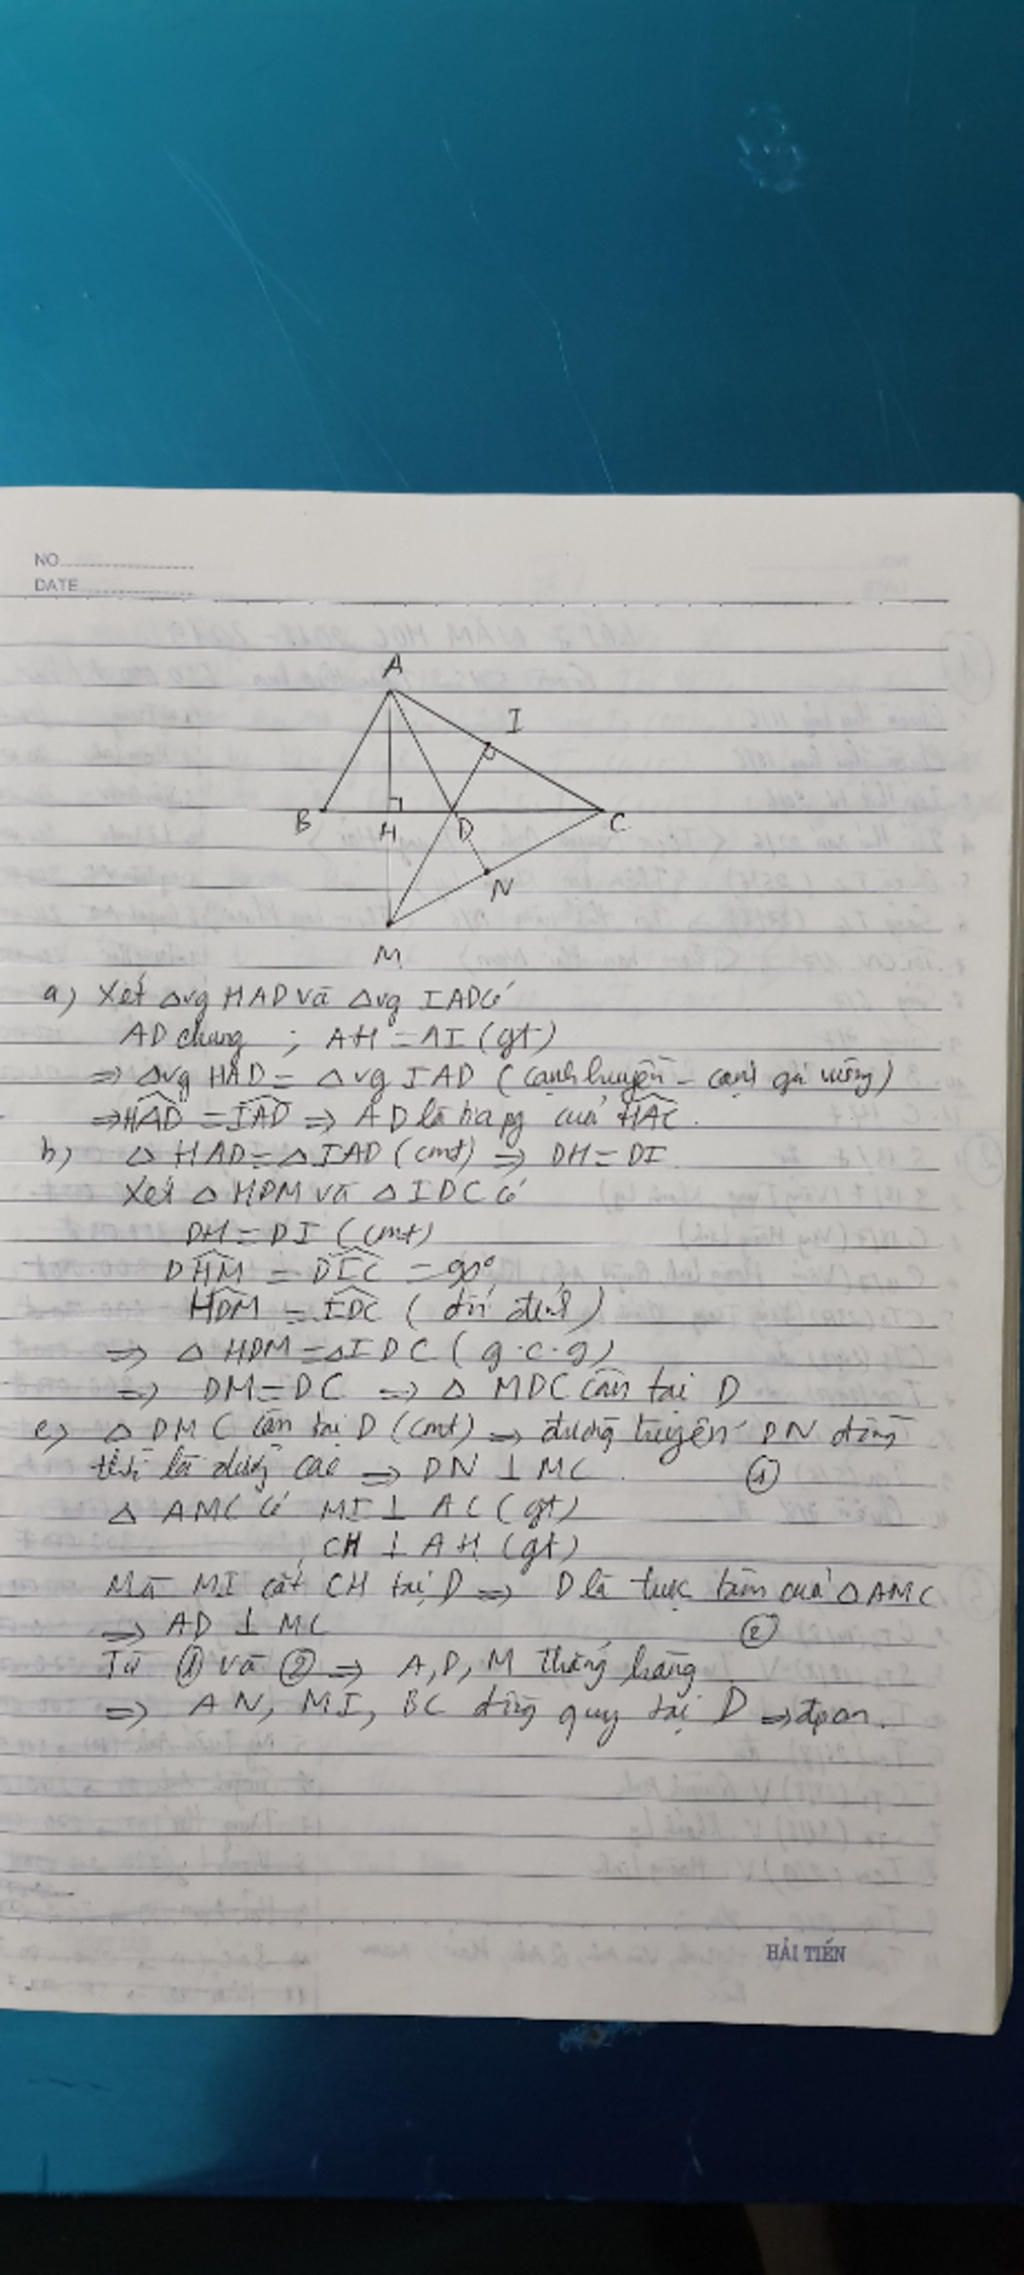 NO
DATE
A
I
B
H
D
C
N
M
a) Xét Δvg HAD và Δvg IAD có
AD chung ; AH = AI (gt)
=> Δvg HAD = Δvg IAD (cạnh huyền - cạnh gó vuông)
=> HAD = IAD => AD là tia pg của HAC.
b) Δ HAD = Δ IAD (cmt) => DH = DI
Xét Δ HDM và Δ IDC có
DH = DI (cmt)
DHM = DIC = 90°
HDM = IDC (đối đỉnh)
=> Δ HDM = Δ IDC (g.c.g)
=> DM = DC => Δ MDC cân tại D
c) Δ DMC cân tại D (cmt) => đường tuyến DN đồng
thời là đường cao => DN ⊥ MC. ①
Δ AMC có MI ⊥ AC (gt)
CH ⊥ AH (gt)
Mà MI cắt CH tại D => D là trực tâm của Δ AMC
=> AD ⊥ MC ②
Từ ① và ② => A, D, M thẳng hàng
=> AN, MI, BC đồng quy tại D => đpcm.
HẢI TIẾN